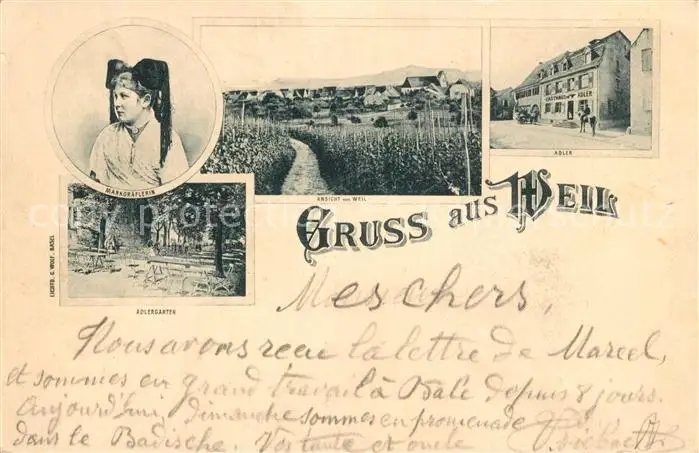 MARKGRÄFLERIN
ANSICHT VON WEIL
GASTHAUS ZUM ADLER
ADLER
GRUSS AUS WEIL
LICHTD. G. WOLF, BASEL
ADLERGARTEN
Mes chers,
Nous avons recu la lettre de Marcel,
et sommes en grand travail à Bâle depuis 8 jours.
Aujourd'hui, dimanche sommes en promenade
dans le Badische. Vos tante et oncle